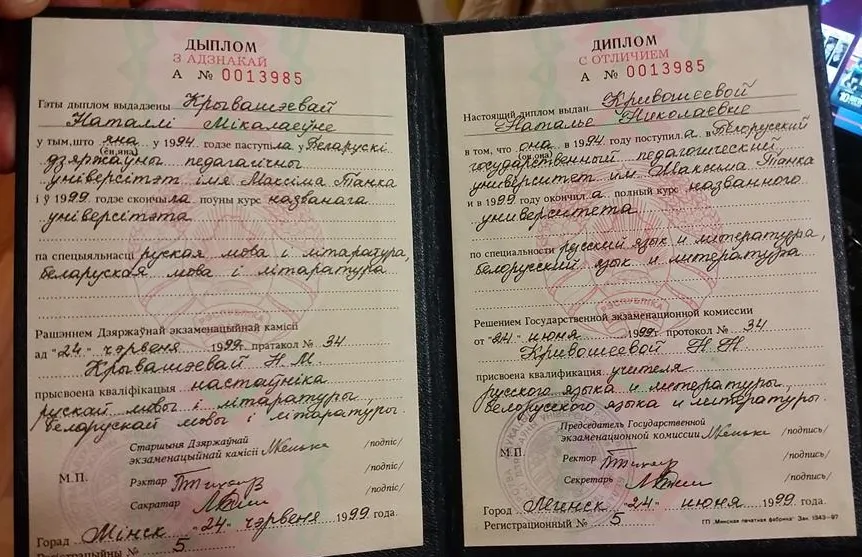 ДЫПЛОМ
З АДЗНАКАЙ
А № 0013985
Гэты дыплом выдадзены Крывашэевай
Наталлі Мікалаеўне
у тым, што яна у 1994 годзе паступіла у Беларускі
(ён, яна)
дзяржаўны педагагічны
універсітэт імя Максіма Танка
і ў 1999 годзе скончыла поўны курс названага
універсітэта
па спецыяльнасці руская мова і літаратура,
беларуская мова і літаратура
Рашэннем Дзяржаўнай экзаменацыйнай камісіі
ад "24" чэрвеня 1999г. пратакол № 34
Крывашэевай Н.М
прысвоена кваліфікацыя настаўніка
рускай мовы і літаратуры,
беларускай мовы і літаратуры.
Старшыня Дзяржаўнай
экзаменацыйнай камісіі /подпіс/
М.П.
Рэктар /подпіс/
Сакратар /подпіс/
Горад Мінск "24" чэрвеня 1999 года.
Рэгістрацыйны № 5
ДИПЛОМ
С ОТЛИЧИЕМ
А № 0013985
Настоящий диплом выдан Кривошеевой
Наталье Николаевне
в том, что она в 1994 году поступил а в Белорусский
(он, она)
государственный педагогический
университет им. Максима Танка
и в 1999 году окончил а полный курс названного
университета
по специальности русский язык и литература,
белорусский язык и литература
Решением Государственной экзаменационной комиссии
от "24" июня 1999г. протокол № 34
Кривошеевой Н.Н.
присвоена квалификация учителя
русского языка и литературы,
белорусского языка и литературы.
Председатель Государственной
экзаменационной комиссии /подпись/
М.П.
Ректор /подпись/
Секретарь /подпись/
Город Минск "24" июня 1999 года.
Регистрационный № 5
ГП "Минская печатная фабрика" Зак. 1543-97